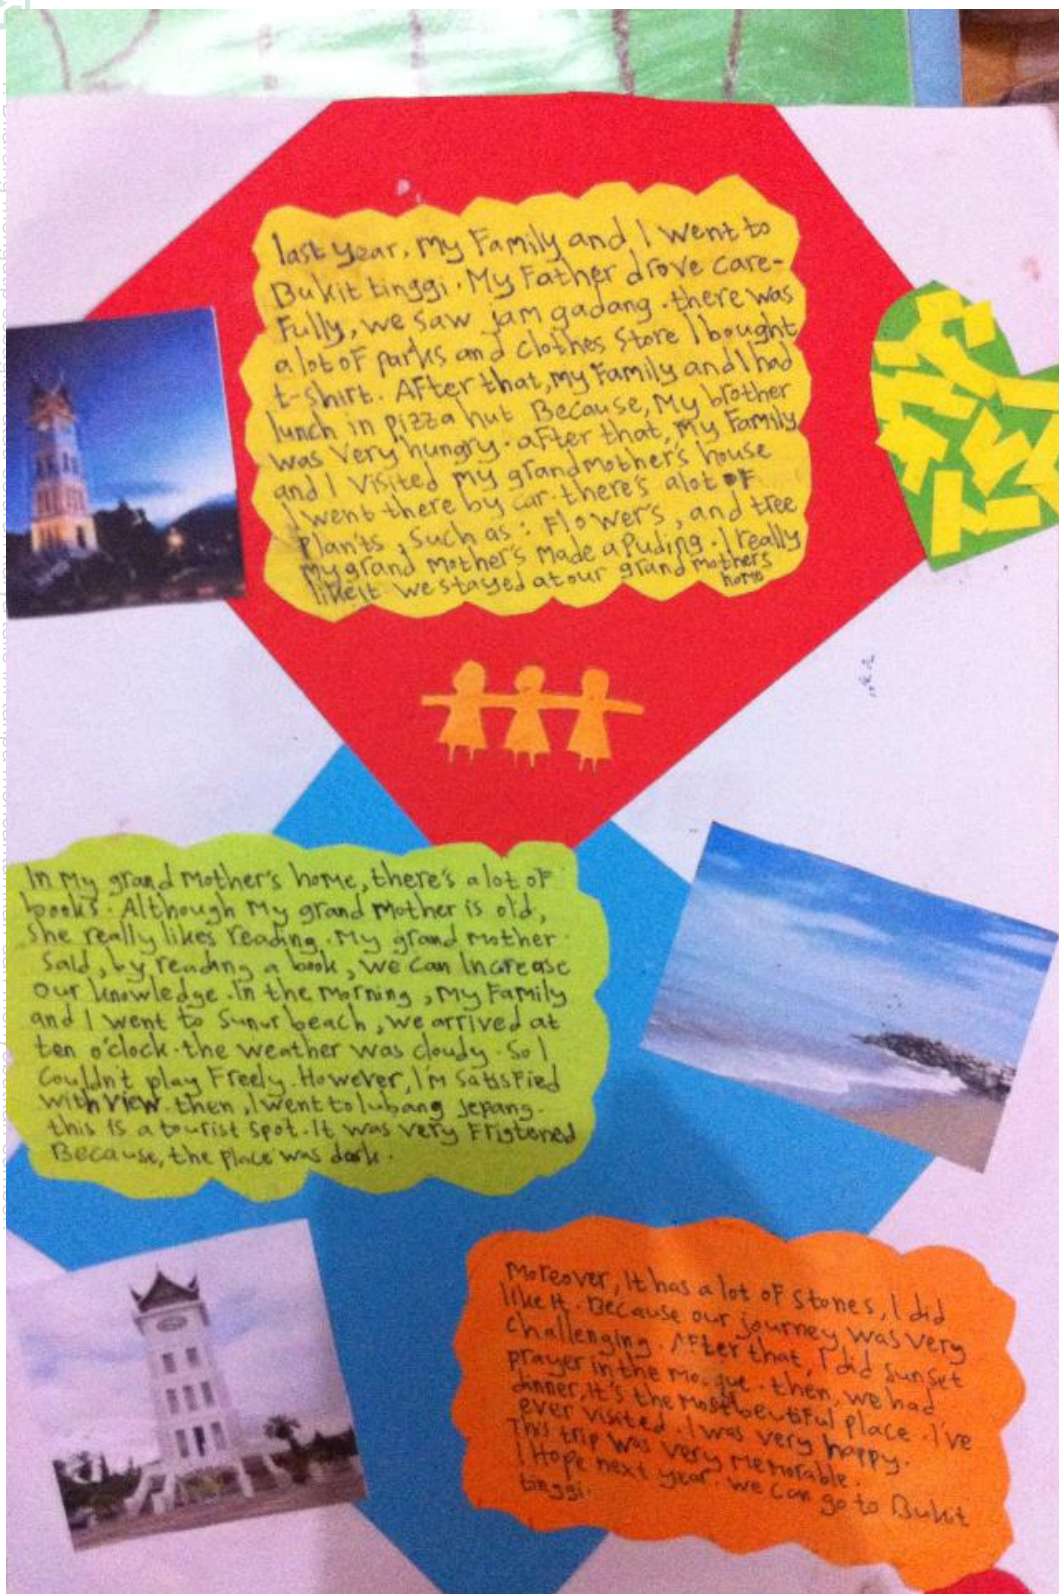 last year, My Family and I went to
Bukit tinggi. My Father drove care-
Fully, we saw jam gadang. there was
a lot of parks and clothes store I bought
t-shirt. After that, my Family and I had
lunch in pizza hut Because, My brother
was very hungry. after that, my Family
and I visited my grandmother's house
I went there by car. there's alot of
Plan'ts, such as : Flower's, and tree
my grand mother's made a Puding. I really
like it. we stayed at our grand mothers
home
In My grand Mother's home, there's a lot of
books. Although My grand Mother is old,
She really likes reading. My grand mother
Said, by reading a book, we can increase
our knowledge. In the morning, My Family
and I went to Sunur beach, we arrived at
ten o'clock. the weather was cloudy. So I
Couldn't play Freely. However, I'm Satisfied
with view. then, I went to lubang Jepang.
this is a tourist spot. It was very Fristened
Because, the place was dark.
Moreover, It has a lot of Stones, I did
like it. Because our journey was very
challenging. After that, I did sunset
prayer in the Mosque. then, we had
dinner, it's the most beutiful place. I've
ever visited. I was very happy.
This trip was very memorable.
I Hope next year. we can go to Bukit
tinggi.